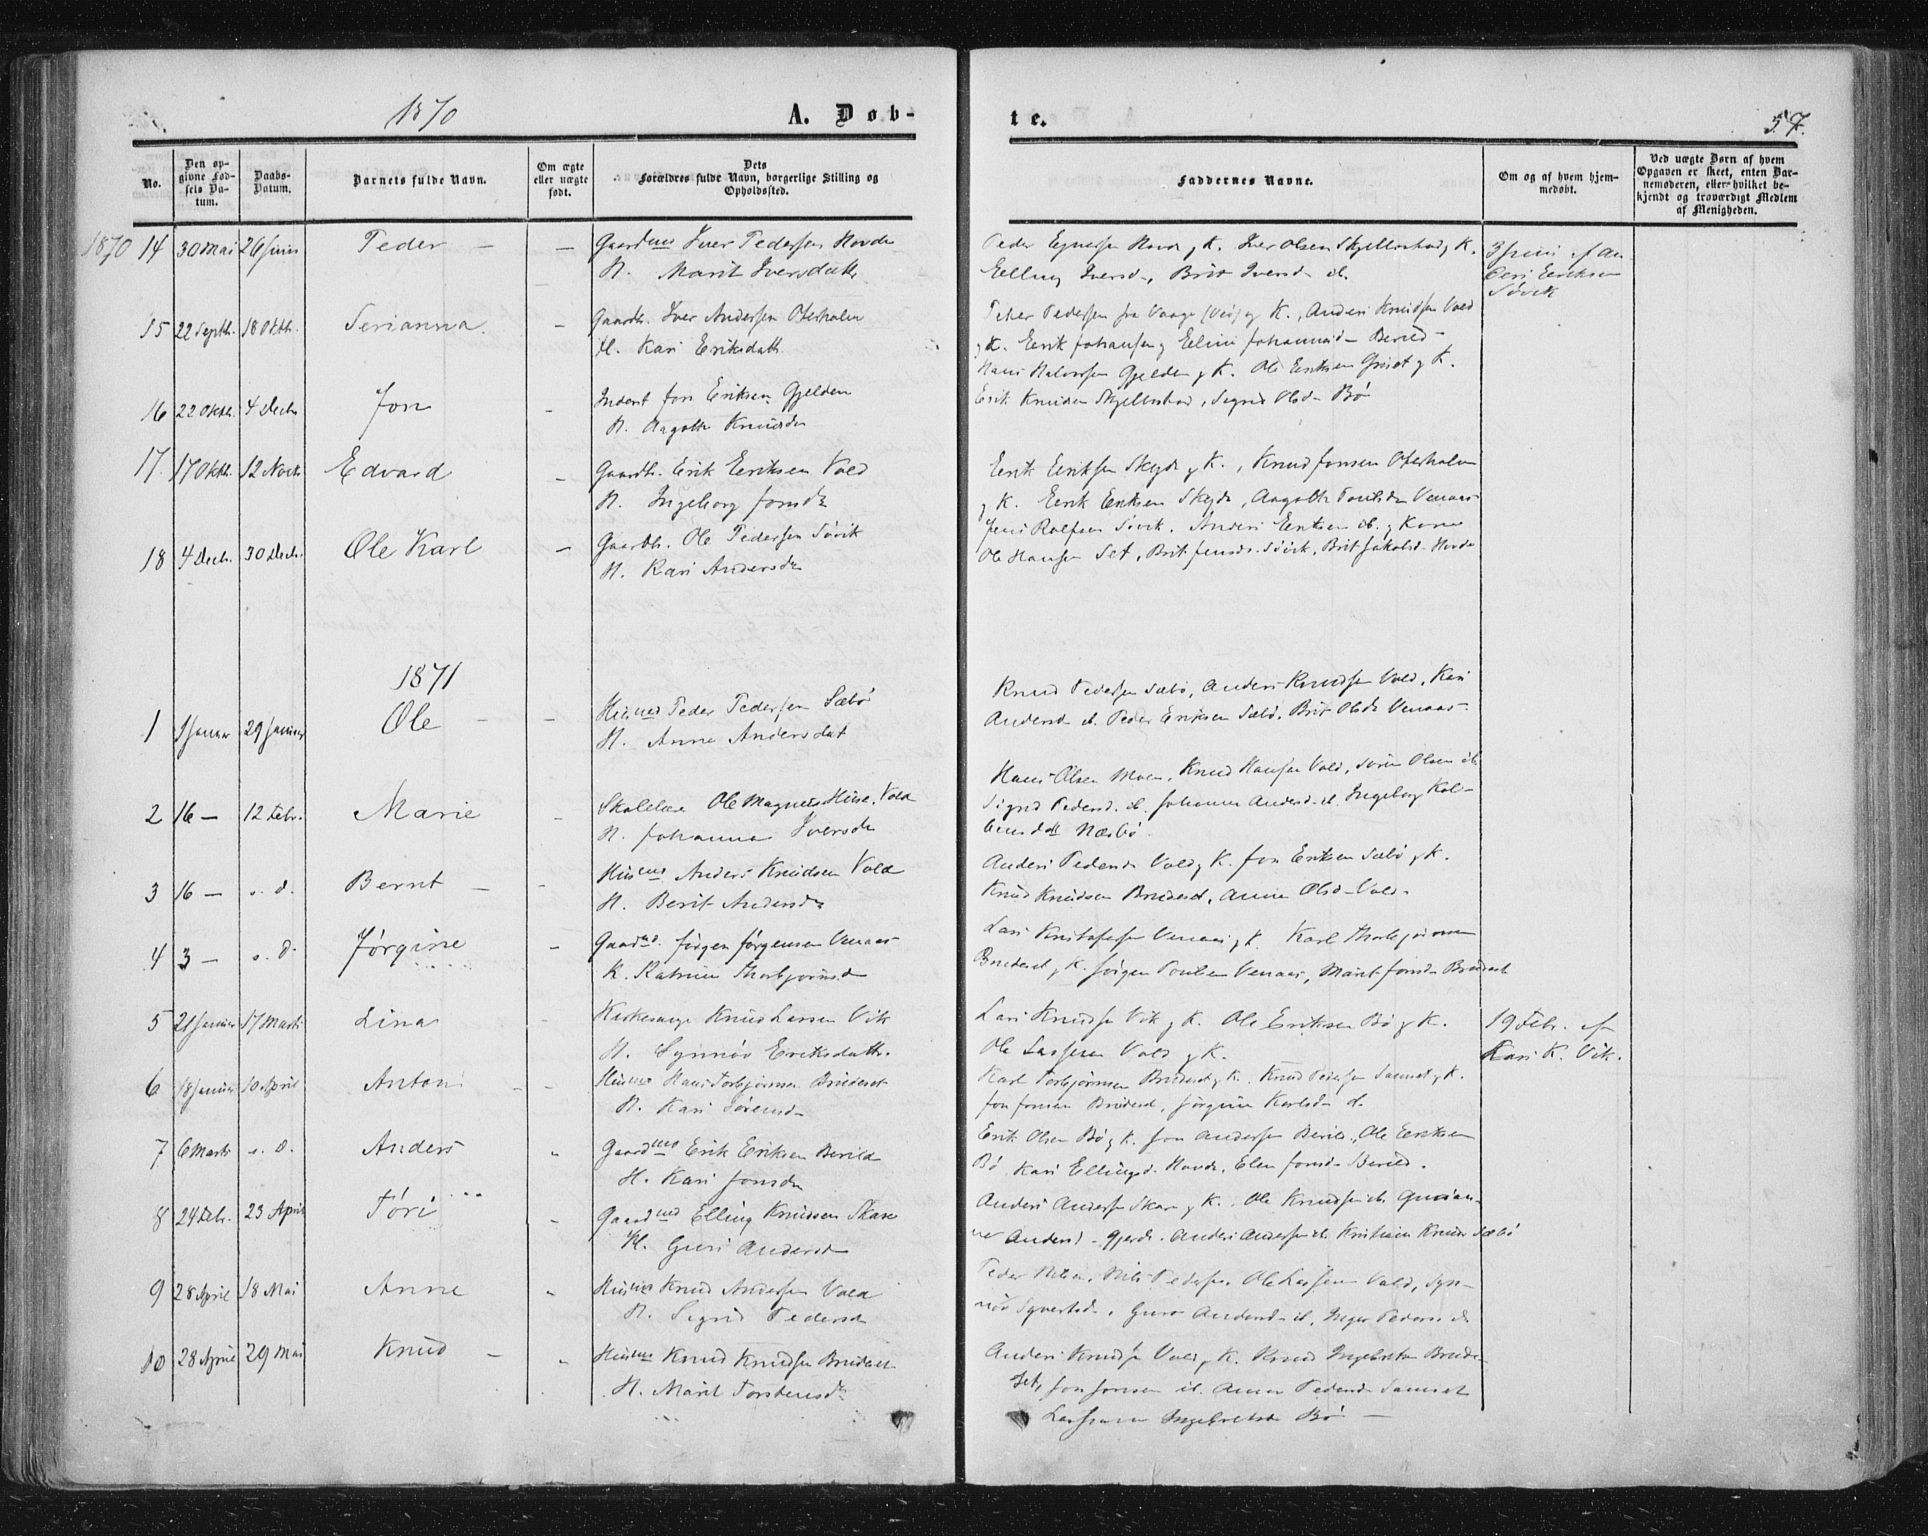 1870
A. Døb-
te.
57.
No.
Den op-
givne Fød-
sels Da-
tum.
Daabs-
Datum.
Barnets fulde Navn.
Om ægte
eller uægte
født.
Dets
Forældres fulde Navn, borgerlige Stilling og
Opholdssted.
Faddernes Navne.
Om og af hvem hjem-
medøbt.
Ved uægte Børn af hvem
Opgaven er skeet, enten Bar-
nemoderen, eller hvilket be-
kjendt og troværdigt Medlem
af Menigheden.
1870 14 30 Mai 26 Juni Peder — — Gaardms Iver Pedersen Hovde
H. Marit Iversdatt.
Peder Hovde g K. Iver Olsen g K.
Elling Iversd, Brit Iversd d.
3 Juni af
Eriksen
Søvik
15 22 Septb. 18 Oktb. Serianna — Gaardb. Iver Andersen Oterholm
H. Kari Eriksdatt.
Peder Pedersen fra Vaage g K., Anders Knudsen Vold
g K. Erik Johansen g Johannisd Berild
16 22 Oktb. 4 Decb. Jon — Inderst Jon Eriksen Gjelden
H. Aagothe Knudsd
Hans Halvorsen Gjelden g K. Ole Eriksen g K.
Erik Knudsen, Sigrid Olsd Bø
17. 17 Oktb. 12 Novb. Edvard — Gaardb. Erik Eriksen Vold
H. Ingeborg Jonsd
Erik Eriksen g K., Knud Jonsen Oterholm
g K. Erik Eriksen, Aagothe Venaas
18 4 Decb. 30 Decb. Ole Karl — Gaardb. Ole Pedersen Søvik
H. Kari Andersd
Jens Rolfsen Søvik. Anders Eriksen d. g Kone
Ole Hansen Set, Brit Jensd. Søvik, Brit Jakobsd Hovde
1871
1 9 Januar 29 Januar Ole — — Husms Peder Pedersen Sæbø
H. Anne Andersdat
Knud Pedersen Sæbø, Anders Knudsen Vold, Kari
Andersd d. Peder Eriksen Sæbø, Brit Olsd Venaas
2 16 — 12 Febr. Marie — Ole Magnus Huse, Vold
H. Johanna Iversd
Hans Olsen Moen, Knud Hansen Vold, Søren Olsen d.
Sigrid Pedersd. d. Johanna Andersd d. Ingeborg Kol-
Næsbø.
3 16 — s. D. Bernt — — Husms Anders Knudsen Vold
H. Berit Andersd
Anders Pedersen Vold g K. Jon Eriksen Sæbø g K.
Knud Knudsen Bruaset, Anne Olsd Vold
4 3 — s. D. Jørgine — Gaardms. Jørgen Jørgensen Venaas
K. Katrine Thorbjørnsd
Lars Kristofersen Venaas g K. Karl Thorbjørnsen
Bruaset g K. Jørgen Venaas, Marit Jonsd Bruaset
5 21 Januar 17 Marts Lina — Kirkesanger Knud Larsen Vik
H. Synnøv Eriksdatt.
Lars Knudsen Vik g K. Ole Eriksen Bø g K.
Ole Lassesen Vold g K.
19 Febr. af
Kari K. Vik.
6 18 Januar 10 April Anton — — Husms Hans Torbjørnsen Bruaset
H. Kari Sørensd
Karl Torbjørnsen Bruaset g K. Knud Pedersen g K.
Jon Jonsen Bruaset, Jørgine Karlsd d.
7 6 Marts s. D. Anders — Gaardms Erik Eriksen Berild
H. Kari Jonsd
Erik Olsen Bø g K. Jon Andersen Berild, Ole Eriksen
Bø, Kari Ellingsd. Hovde, Elen Jonsd Berild.
8 24 Feb. 23 April Tøri — Gaardms Elling Knudsen Skare
H. Guri Andersd
Anders Andersen Skare g K. Ole Knudsen d. Gurian-
ne Andersd. Gjerde. Anders Andersen d. Sæbø
9 28 April 18 Mai Anne — Husms Knud Andersen Vold
H. Sigrid Pedersd
Peder Nilsen, Nils Pedersen. Ole Lassesen Vold, Syn-
nøv Syvertsd. Guro Andersd d. Inger Pedersd d.
10 28 April 29 Mai Knud — — Husms Knud Knudsen Bruaset
H. Marit Torstensd
Anders Knudsen Vold g K. Knud Ingebretsen Brua-
set, Jon Jonsen d. Anne Pedersd
Ingebretsen Bø —